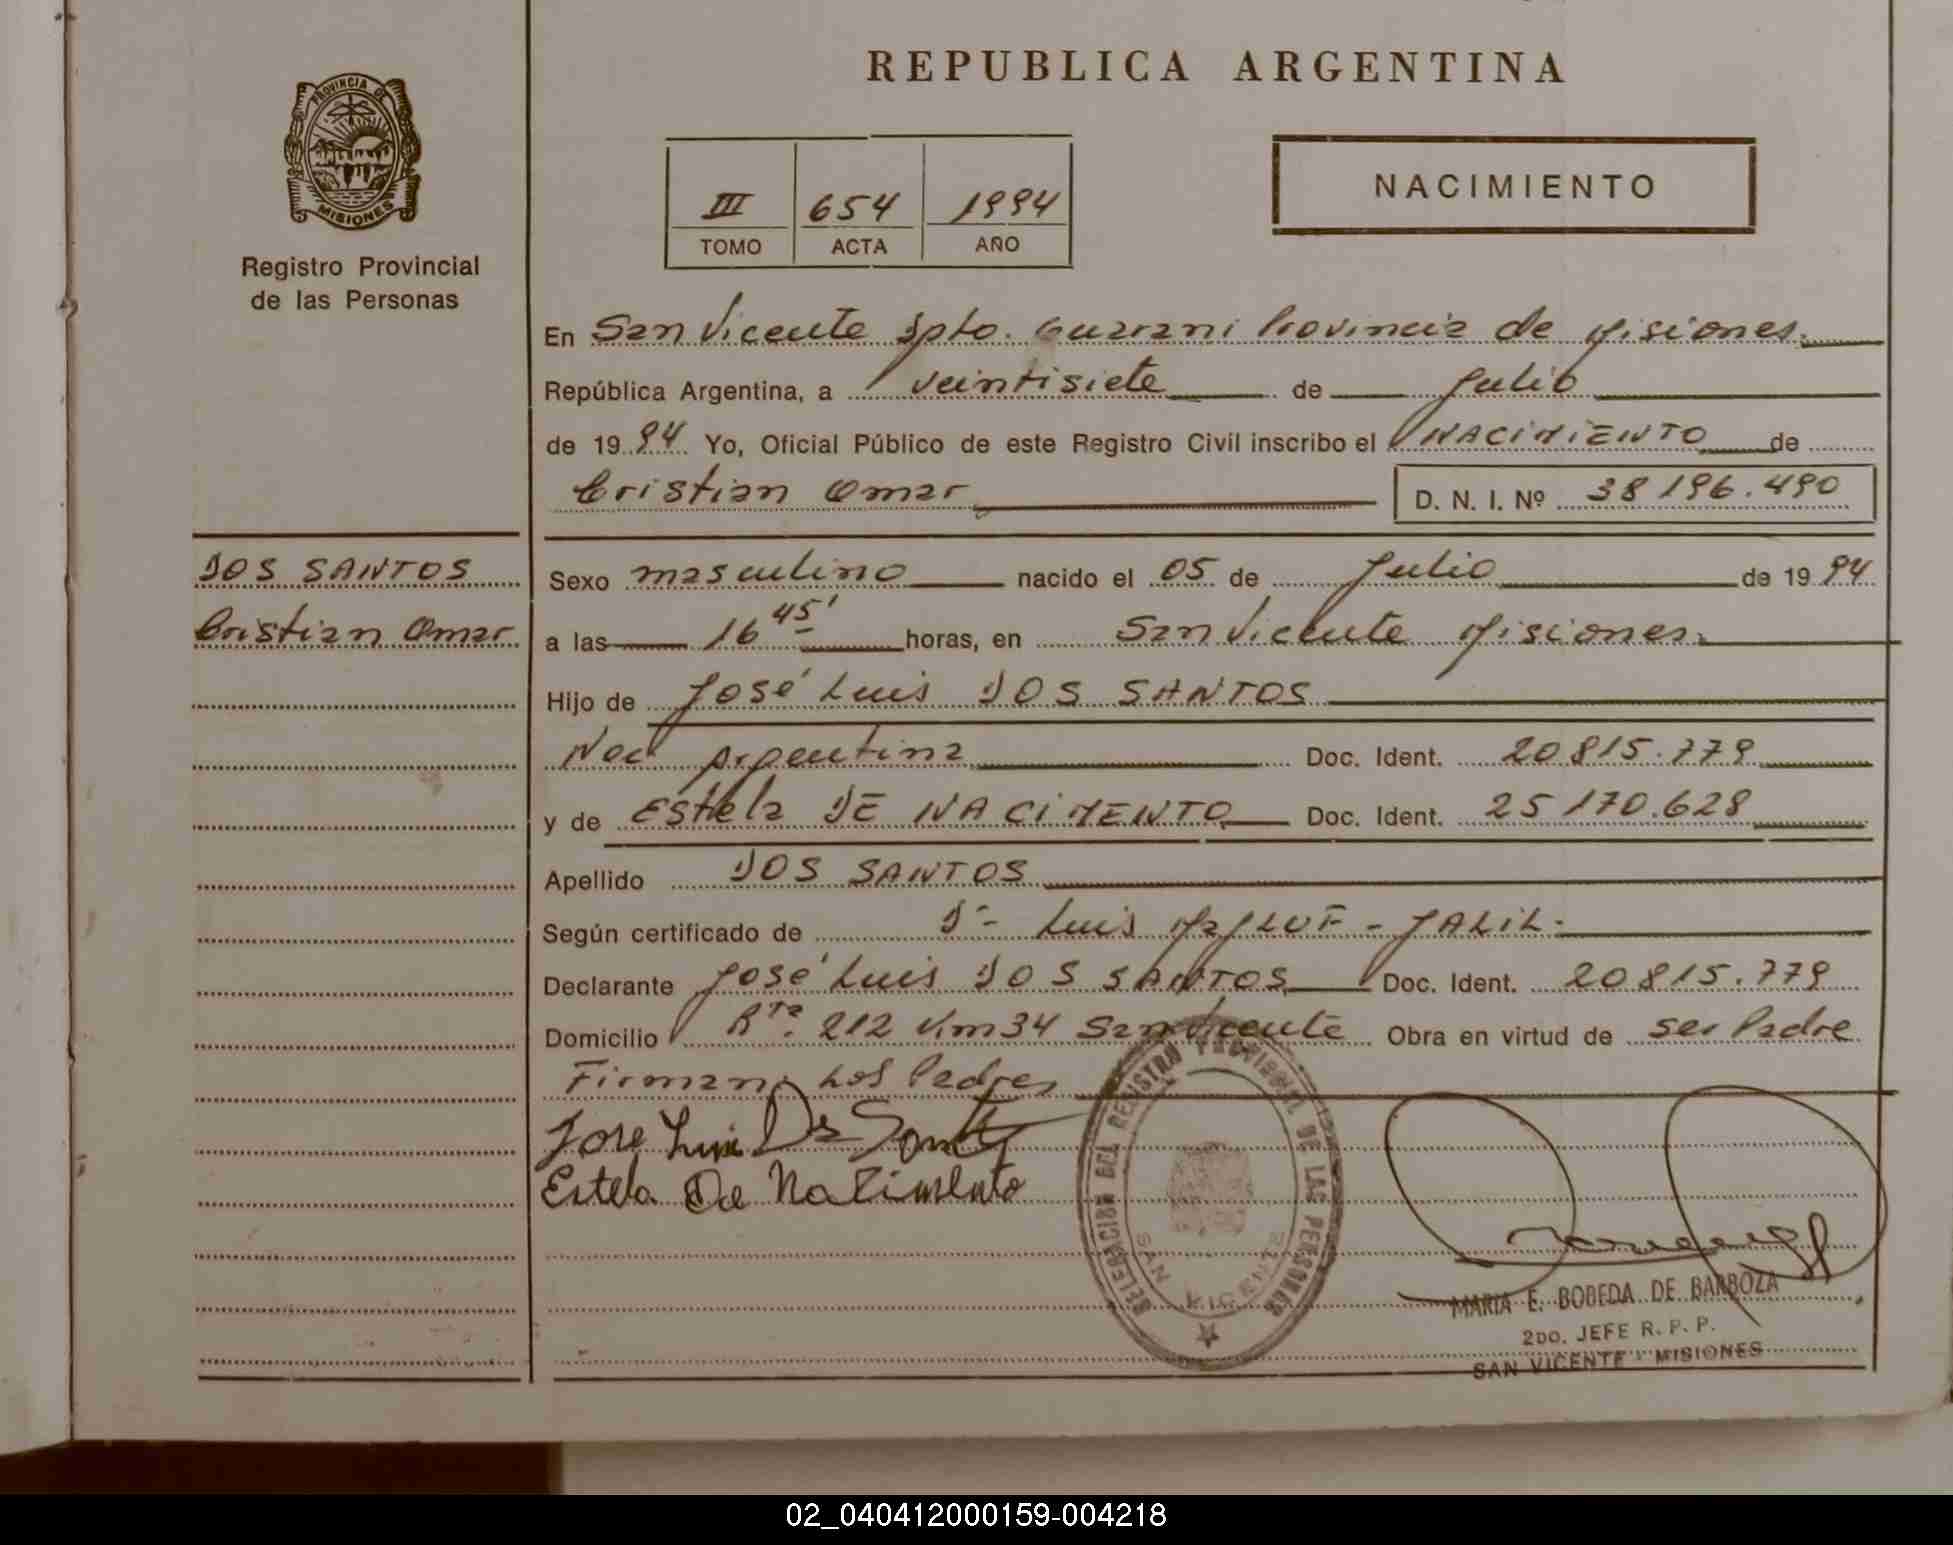 REPUBLICA ARGENTINA
PROVINCIA DE
MISIONES
Registro Provincial
de las Personas
III 654 1994
TOMO ACTA AÑO
NACIMIENTO
En San Vicente Dpto. Guarani Provincia de Misiones.
República Argentina, a veintisiete de Julio
de 1994 Yo, Oficial Público de este Registro Civil inscribo el NACIMIENTO de
Cristian Omar D. N. I. Nº 38196.490
DOS SANTOS
Cristian Omar
Sexo masculino nacido el 05 de Julio de 1994
a las 16 45' horas, en San Vicente Misiones.
Hijo de José Luis DOS SANTOS
Nac Argentina Doc. Ident. 20815.779
y de Estela DE NACIMENTO Doc. Ident. 25170.628
Apellido DOS SANTOS
Según certificado de Luis JALIL.
Declarante José Luis DOS SANTOS Doc. Ident. 20815.779
Domicilio Rta. 212 Km 34 San Vicente Obra en virtud de ser Padre
Firman: Los Padres
Jose Luis Ds Santos
Estela De Nacimento
DELEGACION DEL REGISTRO PROVINCIAL DE LAS PERSONAS
SAN VICENTE
MARIA E. BOBEDA DE BARBOZA
2DO. JEFE R. P. P.
SAN VICENTE - MISIONES
02_040412000159-004218